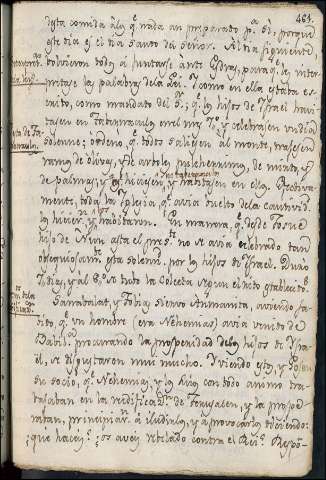 461.
desta comida a los q.e nada an preparado p.a si, porque
este dia es el dia santo del Señor. Al dia siguiente,
bolvieron todos a juntarse ante Esdras, para q.e les inter
pretase las palabras de la Lei. I como en ella estaba es
crito, como mandato del S.r, q.e los hijos de Ysrael havi
tasen en Tabernaculos en el mes 7.o y celebrasen un dia
solenne: ordenó, q.e todos saliesen al monte, trajesen
ramos de olivos, y de arboles pulcherrimos, de mirto, y
de palmas, y q.e hiciesen, y havitasen en ellos.
los tabernaculos
mente, toda la Iglesia q.e avia buelto de la cautivid.
los hicier.n y habitaron. En manera, q.e desde Josue
hijo de Nun asta el pres.te no se avia celebrado tan
solenn. por los hijos de Ysrael. Duró
7 dias, y al 8.o se hizo la Colecta segun el rito establecido.
Sanabalat, y Tobias siervo Ammanita, aviendo sa
bido, q.e un hombre (era Nehemias) avia venido de
Babil.a procurando la prosperidad de los hijos de Ysra
el, se disgustaron mui mucho. Y viendo este, y
su socio, q.e Nehemias, y los suyos con todo animo tra
tataban en la redifica.on de Jerusalen, y la prospe
raban, principiar.n a iludirlos, y a provocarlos diciendo:
¿que haceis? ¿os aveis rebelado contra el Rei? Respo